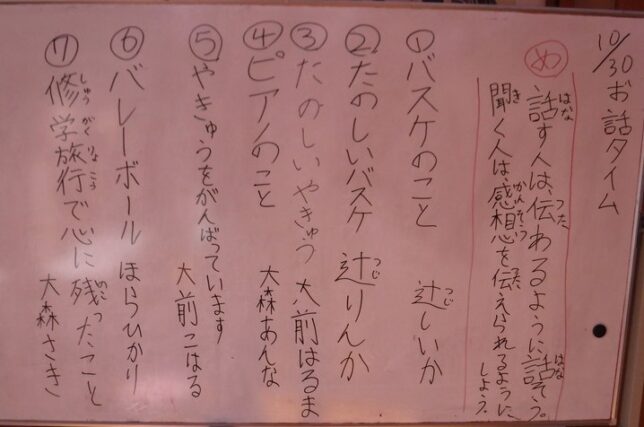 10/30 お話タイム
め 話す人は、伝わるように話そう。
聞く人は、感想を伝えられるようにしよう。
①バスケのこと 辻しいか
②たのしいバスケ 辻りんか
③たのしいやきゅう 大前はるま
④ピアノのこと 大森あんな
⑤やきゅうをがんばっています 大前こはる
⑥バレーボール ほらひかり
⑦修学旅行で心に残ったこと 大森さき